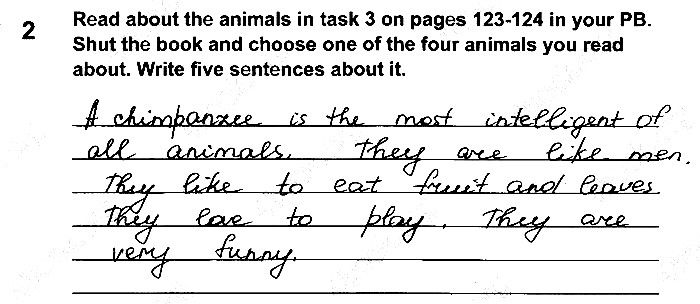 2
Read about the animals in task 3 on pages 123-124 in your PB.
Shut the book and choose one of the four animals you read
about. Write five sentences about it.
A chimpanzee is the most intelligent of
all animals. They are like men.
They like to eat fruit and leaves.
They love to play. They are
very funny.